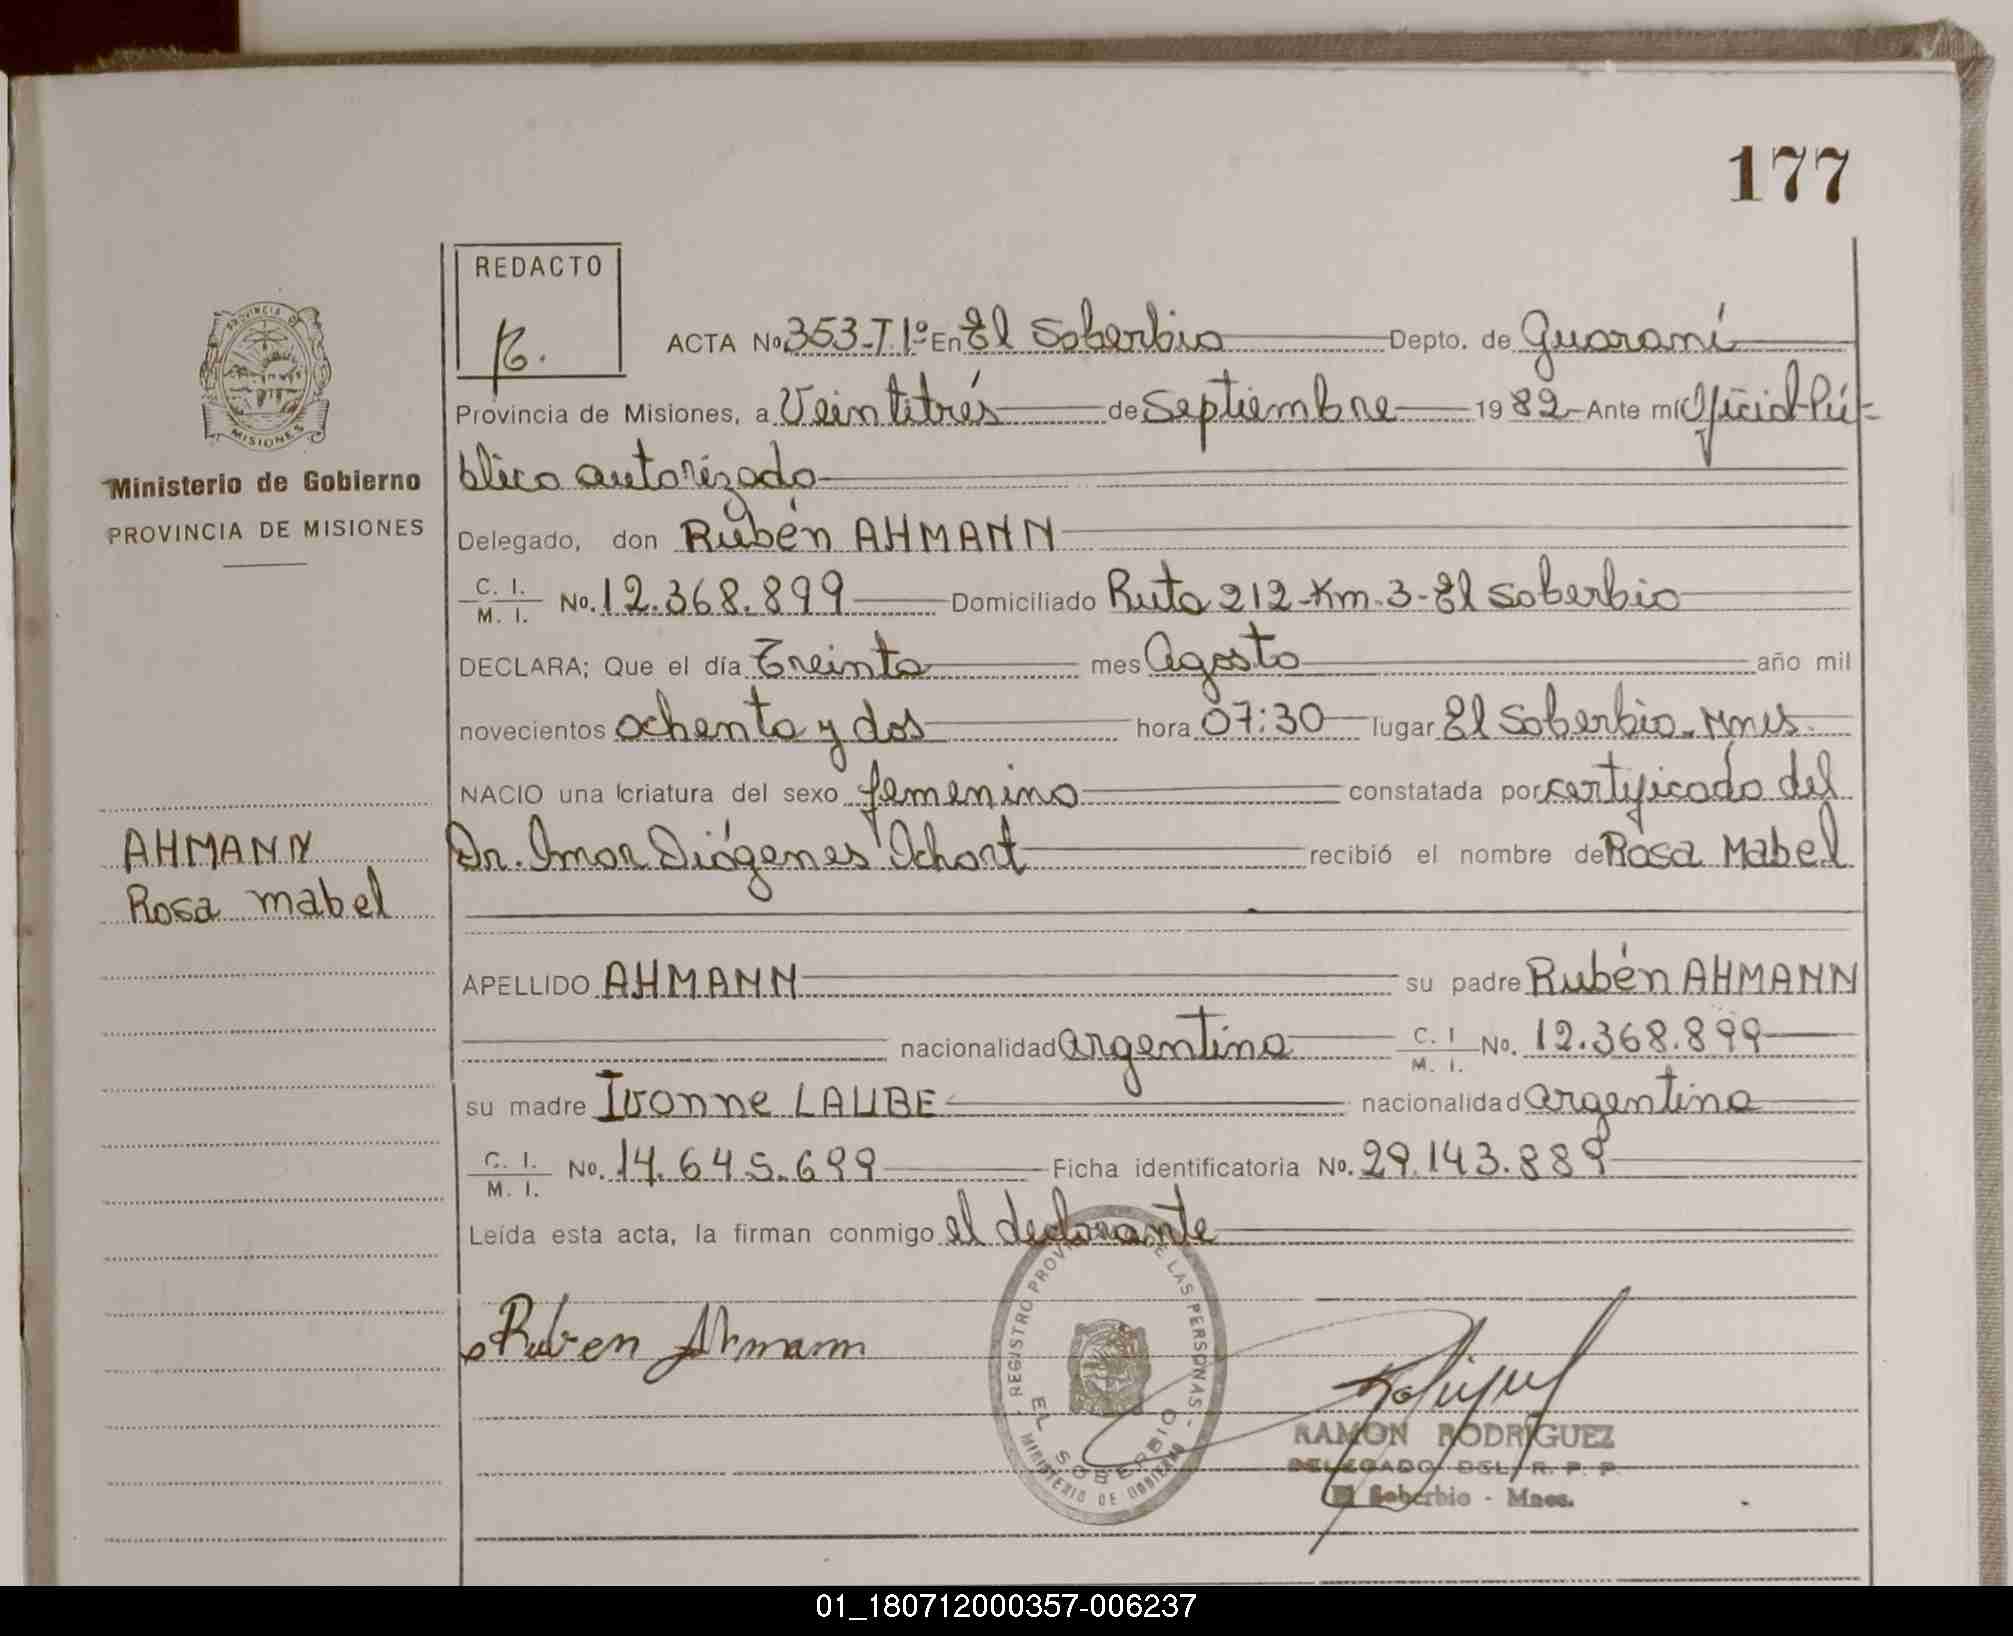 177
REDACTO
R.
ACTA No. 353-T.1º En El Soberbio Depto. de Guaraní
Provincia de Misiones, a Veintitrés de Septiembre 1982 Ante mí Oficial Pú-
blico autorizado
Delegado, don Rubén AHMANN
C. I. M. I. No. 12.368.899 Domiciliado Ruta 212-Km.3-El Soberbio
DECLARA; Que el día Treinta mes Agosto año mil
novecientos ochenta y dos hora 07:30 lugar El Soberbio. Mnes.
NACIO una criatura del sexo femenino constatada por certificado del
Dr. Imar Diógenes Ichart recibió el nombre de Rosa Mabel
APELLIDO AHMANN su padre Rubén AHMANN
nacionalidad argentina C. I. M. I. No. 12.368.899
su madre Ivonne LAUBE nacionalidad argentina
C. I. M. I. No. 14.645.699 Ficha identificatoria No. 29.143.889
Leída esta acta, la firman conmigo el declarante
Ruben Ahmann
REGISTRO PROVINCIAL DE LAS PERSONAS
EL SOBERBIO
MINISTERIO DE GOBIERNO
RAMON RODRIGUEZ
DELEGADO DEL R. P. P.
El Soberbio - Mnes.
PROVINCIA DE
MISIONES
Ministerio de Gobierno
PROVINCIA DE MISIONES
AHMANN
Rosa Mabel
01_180712000357-006237